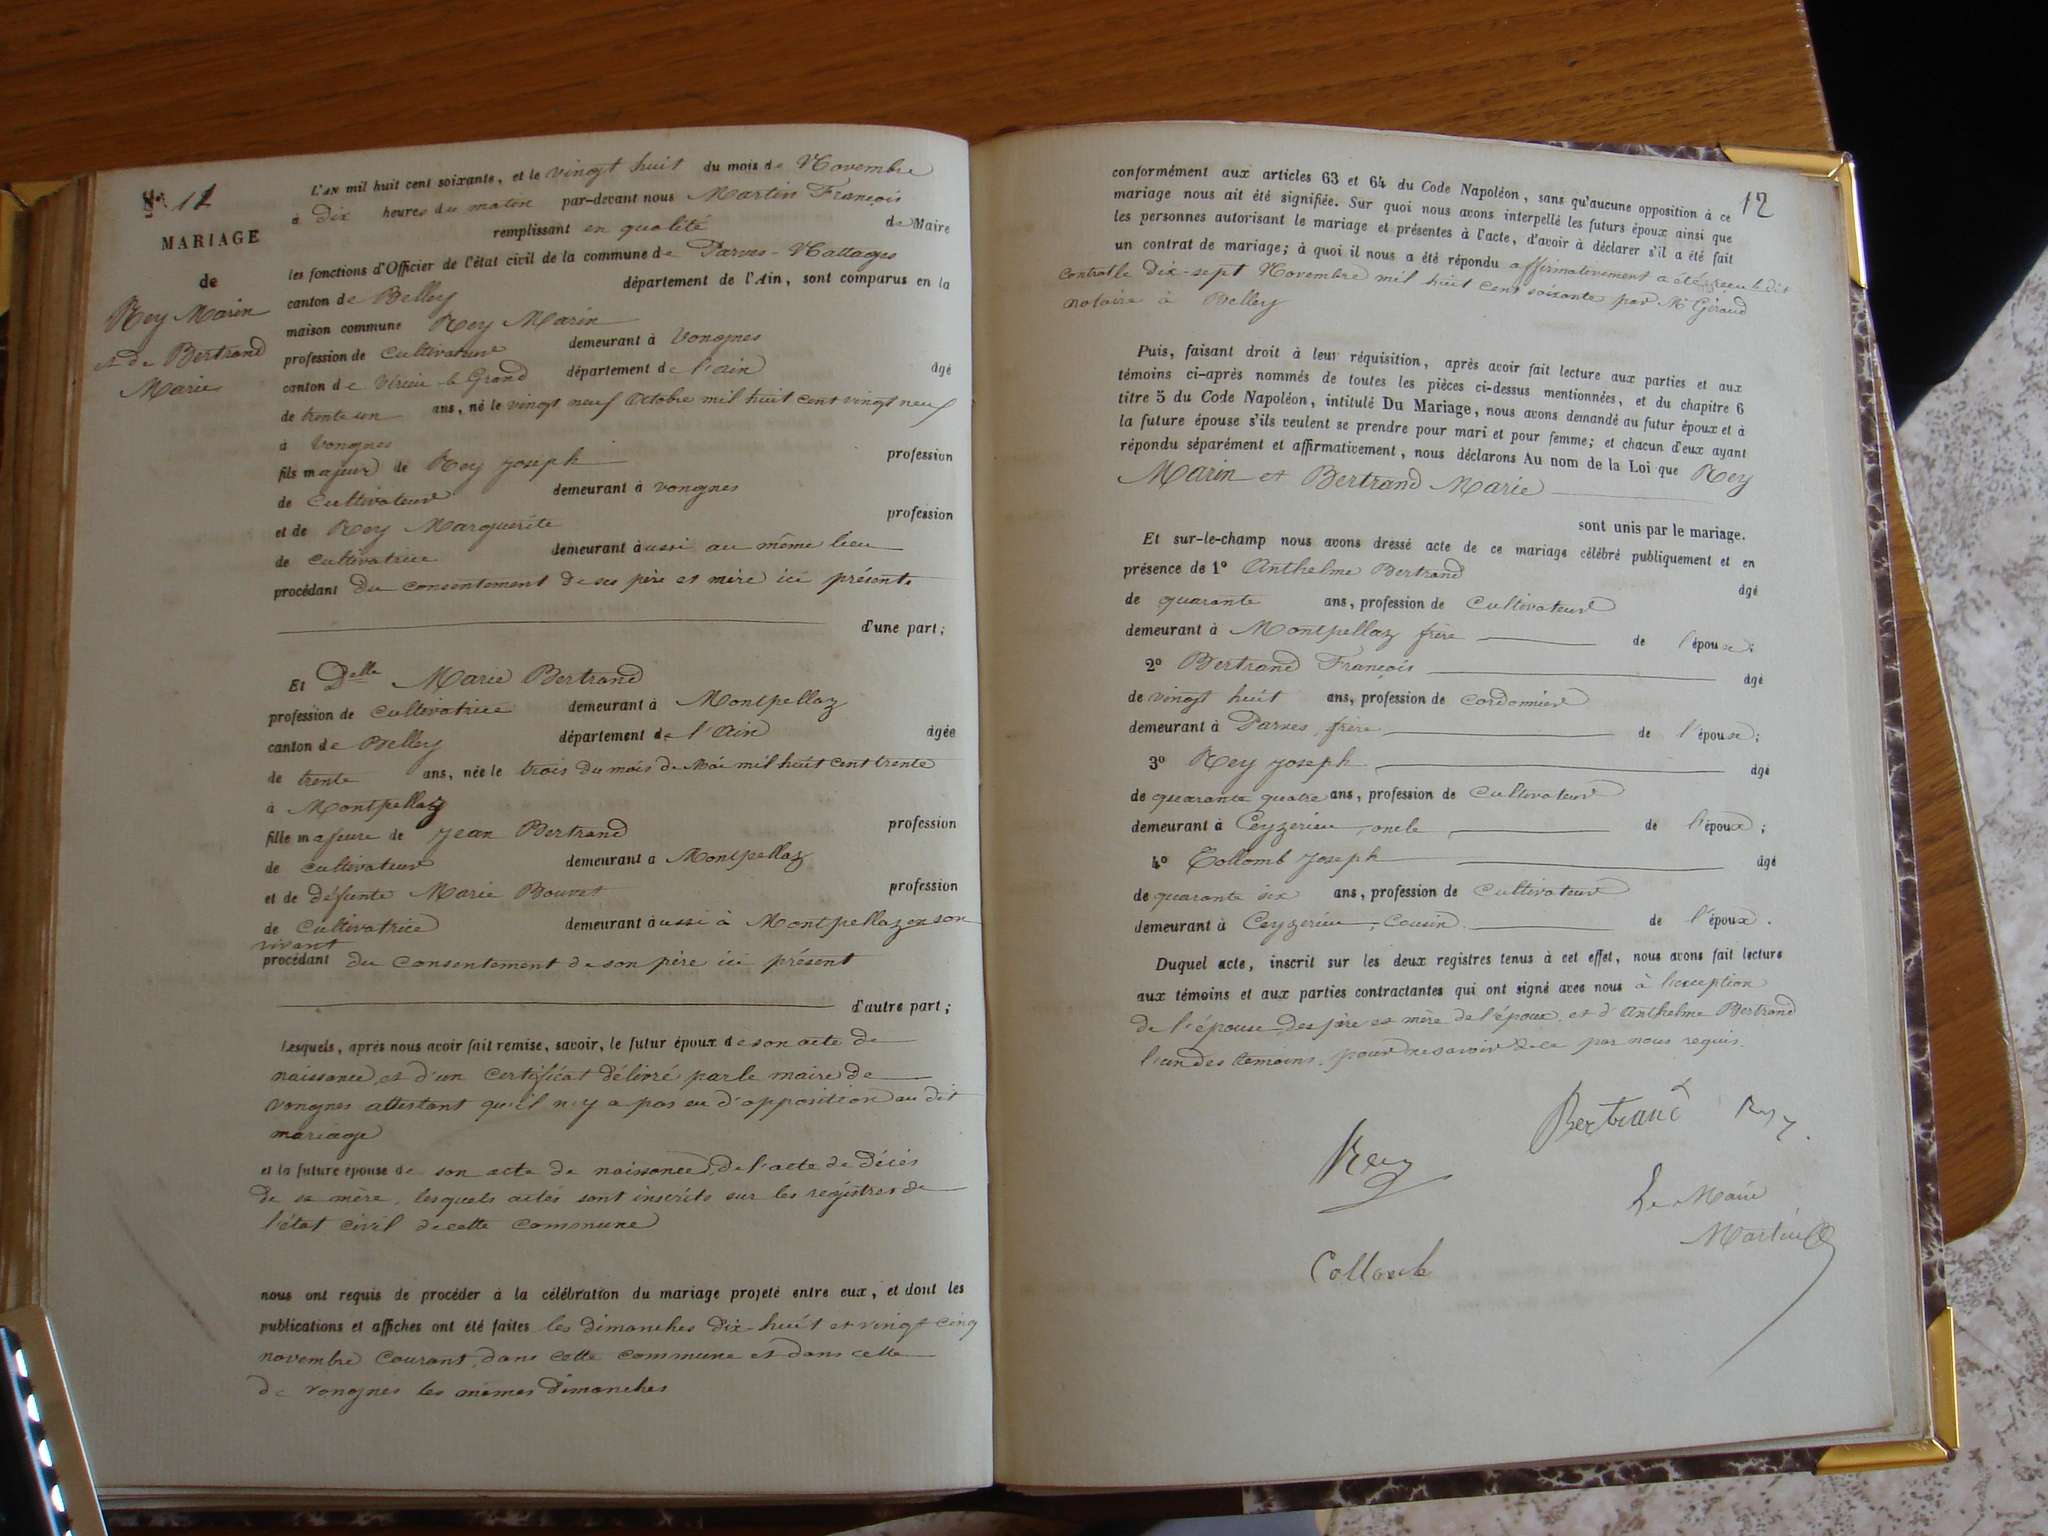 N° 11
MARIAGE
de
Rey Marin
et de Bertrand
Marie
L'AN mil huit cent soixante, et le vingt huit du mois de Novembre
à Dix heures du matin par-devant nous Martin François
remplissant en qualité de Maire
les fonctions d'Officier de l'état civil de la commune de Parves-Nattages
canton de Belley département de l'Ain, sont comparus en la
maison commune Rey Marin
profession de Cultivateur demeurant à Vongnes
canton de Virieu-le-Grand département de l'ain âgé
de trente un ans, né le vingt neuf Octobre mil huit cent vingt neuf
à Vongnes
fils majeur de Rey Joseph profession
de Cultivateur demeurant à vongnes
et de Rey Marguerite profession
de cultivatrice demeurant aussi au même lieu
procédant du consentement de ses père et mère ici présents
d'une part;
Et Delle Marie Bertrand
profession de cultivatrice demeurant à Montpellaz
canton de Belley département de l'Ain âgée
de trente ans, née le trois du mois de Mai mil huit cent trente
à Montpellaz
fille majeure de Jean Bertrand profession
de cultivateur demeurant à Montpellaz
et de défunte Marie Bouvet profession
de Cultivatrice demeurant aussi à Montpellaz en son
vivant
procédant du consentement de son père ici présent
d'autre part;
Lesquels, après nous avoir fait remise, savoir, le futur époux de son acte de
naissance et d'un certificat délivré par le maire de
vongnes attestant qu'il n'y a pas eu d'opposition au dit
mariage
et la future épouse de son acte de naissance, de l'acte de décès
de sa mère, lesquels actes sont inscrits sur les registres de
l'état civil de cette commune
nous ont requis de procéder à la célébration du mariage projeté entre eux, et dont les
publications et affiches ont été faites les dimanches dix-huit et vingt cinq
novembre courant, dans cette commune et dans celle
de vongnes les mêmes dimanches
12
conformément aux articles 63 et 64 du Code Napoléon, sans qu'aucune opposition à ce
mariage nous ait été signifiée. Sur quoi nous avons interpellé les futurs époux ainsi que
les personnes autorisant le mariage et présentes à l'acte, d'avoir à déclarer s'il a été fait
un contrat de mariage; à quoi il nous a été répondu affirmativement a été reçu le dit
contrat le dix-sept Novembre mil huit cent soixante par Me Giraud
notaire à Belley
Puis, faisant droit à leur réquisition, après avoir fait lecture aux parties et aux
témoins ci-après nommés de toutes les pièces ci-dessus mentionnées, et du chapitre 6
titre 5 du Code Napoléon, intitulé Du Mariage, nous avons demandé au futur époux et à
la future épouse s'ils veulent se prendre pour mari et pour femme; et chacun d'eux ayant
répondu séparément et affirmativement, nous déclarons Au nom de la Loi que Rey
Marin et Bertrand Marie
sont unis par le mariage.
Et sur-le-champ nous avons dressé acte de ce mariage célébré publiquement et en
présence de 1° Anthelme Bertrand âgé
de quarante ans, profession de Cultivateur
demeurant à Montpellaz frère de l'épouse;
2° Bertrand François âgé
de vingt huit ans, profession de cordonnier
demeurant à Parves, frère de l'épouse;
3° Rey Joseph âgé
de quarante quatre ans, profession de Cultivateur
demeurant à Ceyzerieu, oncle de l'époux;
4° Collomb Joseph âgé
de quarante six ans, profession de Cultivateur
demeurant à Ceyzerieu, Cousin de l'époux.
Duquel acte, inscrit sur les deux registres tenus à cet effet, nous avons fait lecture
aux témoins et aux parties contractantes qui ont signé avec nous à l'exception
de l'épouse, des père et mère de l'époux et d'Anthelme Bertrand
l'un des témoins pour ne savoir de ce par nous requis.
Bertrand Rey
Rey
Le Maire
Martin
Collomb